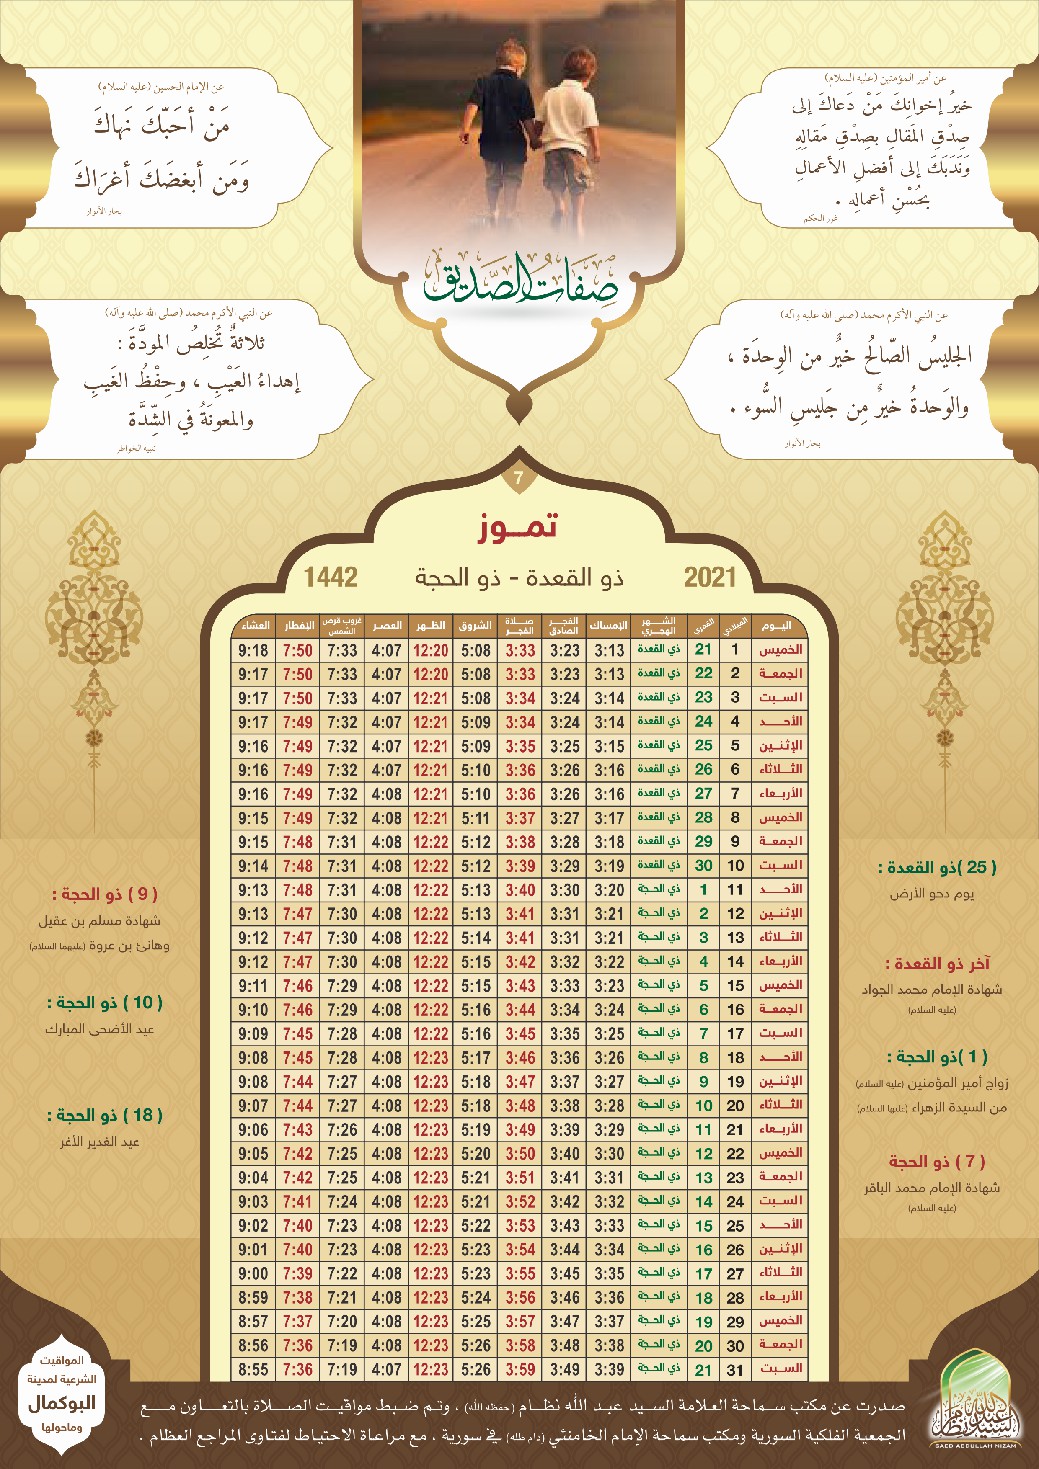 عن أمير المؤمنين (عليه السلام)
خيرُ إخوانِكَ مَنْ دَعاكَ إلى
صِدْقِ المَقالِ بصِدْقِ مَقالِهِ
وَنَدَبَكَ إلى أفضلِ الأعمالِ
بحُسْنِ أعمالِه .
غرر الحكم
عن الإمام الحسين (عليه السلام)
مَنْ أحَبّكَ نَهاكَ
وَمَن أبغضَكَ أغرَاكَ
بحار الأنوار
صفات الصديق
عن النبي الأكرم محمد (صلى الله عليه وآله)
الجليسُ الصّالحُ خيرٌ من الوِحدَة ،
والوَحدةُ خيرٌ مِن جَليسِ السُّوء .
بحار الأنوار
عن النبي الأكرم محمد (صلى الله عليه وآله)
ثلاثةٌ تُخلِصُ المودَّةَ :
إهداءُ العَيْبِ ، وحِفْظُ الغَيبِ
والمعونَةُ في الشِّدَّة
تنبيه الخواطر
7
تمـــوز
2021 ذو القعدة - ذو الحجة 1442
اليـوم الميلادي القمري الشـــهر الهجـري الإمساك الفجـــر الصادق صــلاة الفجـر الشروق الظـهر العصـر غروب قرص الشمس الإفطار العشاء
الخميس 1 21 ذي القعدة 3:13 3:23 3:33 5:08 12:20 4:07 7:33 7:50 9:18
الجمعـة 2 22 ذي القعدة 3:13 3:23 3:33 5:08 12:20 4:07 7:33 7:50 9:17
السـبت 3 23 ذي القعدة 3:14 3:24 3:34 5:08 12:21 4:07 7:33 7:50 9:17
الأحــد 4 24 ذي القعدة 3:14 3:24 3:34 5:09 12:21 4:07 7:32 7:49 9:17
الإثنـين 5 25 ذي القعدة 3:15 3:25 3:35 5:09 12:21 4:07 7:32 7:49 9:16
الثـلاثاء 6 26 ذي القعدة 3:16 3:26 3:36 5:10 12:21 4:07 7:32 7:49 9:16
الأربـعاء 7 27 ذي القعدة 3:16 3:26 3:36 5:10 12:21 4:08 7:32 7:49 9:16
الخميس 8 28 ذي القعدة 3:17 3:27 3:37 5:11 12:21 4:08 7:32 7:49 9:15
الجمعـة 9 29 ذي القعدة 3:18 3:28 3:38 5:12 12:22 4:08 7:31 7:48 9:15
السـبت 10 30 ذي القعدة 3:19 3:29 3:39 5:12 12:22 4:08 7:31 7:48 9:14
الأحــد 11 1 ذي الحـجة 3:20 3:30 3:40 5:13 12:22 4:08 7:31 7:48 9:13
الإثنـين 12 2 ذي الحـجة 3:21 3:31 3:41 5:13 12:22 4:08 7:30 7:47 9:13
الثـلاثاء 13 3 ذي الحـجة 3:21 3:31 3:41 5:14 12:22 4:08 7:30 7:47 9:12
الأربـعاء 14 4 ذي الحـجة 3:22 3:32 3:42 5:15 12:22 4:08 7:30 7:47 9:12
الخميس 15 5 ذي الحـجة 3:23 3:33 3:43 5:15 12:22 4:08 7:29 7:46 9:11
الجمعـة 16 6 ذي الحـجة 3:24 3:34 3:44 5:16 12:22 4:08 7:29 7:46 9:10
السـبت 17 7 ذي الحـجة 3:25 3:35 3:45 5:16 12:22 4:08 7:28 7:45 9:09
الأحــد 18 8 ذي الحـجة 3:26 3:36 3:46 5:17 12:23 4:08 7:28 7:45 9:08
الإثنـين 19 9 ذي الحـجة 3:27 3:37 3:47 5:18 12:23 4:08 7:27 7:44 9:08
الثـلاثاء 20 10 ذي الحـجة 3:28 3:38 3:48 5:18 12:23 4:08 7:27 7:44 9:07
الأربـعاء 21 11 ذي الحـجة 3:29 3:39 3:49 5:19 12:23 4:08 7:26 7:43 9:06
الخميس 22 12 ذي الحـجة 3:30 3:40 3:50 5:20 12:23 4:08 7:25 7:42 9:05
الجمعـة 23 13 ذي الحـجة 3:31 3:41 3:51 5:21 12:23 4:08 7:25 7:42 9:04
السـبت 24 14 ذي الحـجة 3:32 3:42 3:52 5:21 12:23 4:08 7:24 7:41 9:03
الأحــد 25 15 ذي الحـجة 3:33 3:43 3:53 5:22 12:23 4:08 7:23 7:40 9:02
الإثنـين 26 16 ذي الحـجة 3:34 3:44 3:54 5:23 12:23 4:08 7:23 7:40 9:01
الثـلاثاء 27 17 ذي الحـجة 3:35 3:45 3:55 5:23 12:23 4:08 7:22 7:39 9:00
الأربـعاء 28 18 ذي الحـجة 3:36 3:46 3:56 5:24 12:23 4:08 7:21 7:38 8:59
الخميس 29 19 ذي الحـجة 3:37 3:47 3:57 5:25 12:23 4:08 7:20 7:37 8:57
الجمعـة 30 20 ذي الحـجة 3:38 3:48 3:58 5:26 12:23 4:08 7:19 7:36 8:56
السـبت 31 21 ذي الحـجة 3:39 3:49 3:59 5:26 12:23 4:07 7:19 7:36 8:55
( 25 )ذو القعدة :
يوم دحو الأرض
آخر ذو القعدة :
شهادة الإمام محمد الجواد
(عليه السلام)
( 1 )ذو الحجة :
زواج أمير المؤمنين (عليه السلام)
من السيدة الزهراء (عليها السلام)
( 7 ) ذو الحجة
شهادة الإمام محمد الباقر
(عليه السلام)
( 9 ) ذو الحجة :
شهادة مسلم بن عقيل
وهانئ بن عروة (عليهما السلام)
( 10 ) ذو الحجة :
عيد الأضحى المبارك
( 18 ) ذو الحجة :
عيد الغدير الأغر
المواقيت
الشرعية لمدينة
البوكمال
وماحولها
صـدرت عن مكتب سـماحة العلامة السـيد عبـد الله نظـام (حفظه الله) ، وتـم ضبـط مواقيـت الصـلاة بالتعــاون مــع
الجمعية الفلكية السورية ومكتب سماحة الإمام الخامنئي (دام ظله) في سورية ، مع مراعاة الاحتياط لفتاوى المراجع العظام .
السيد عبد الله نظام
SAED ABDULLAH NIZAM